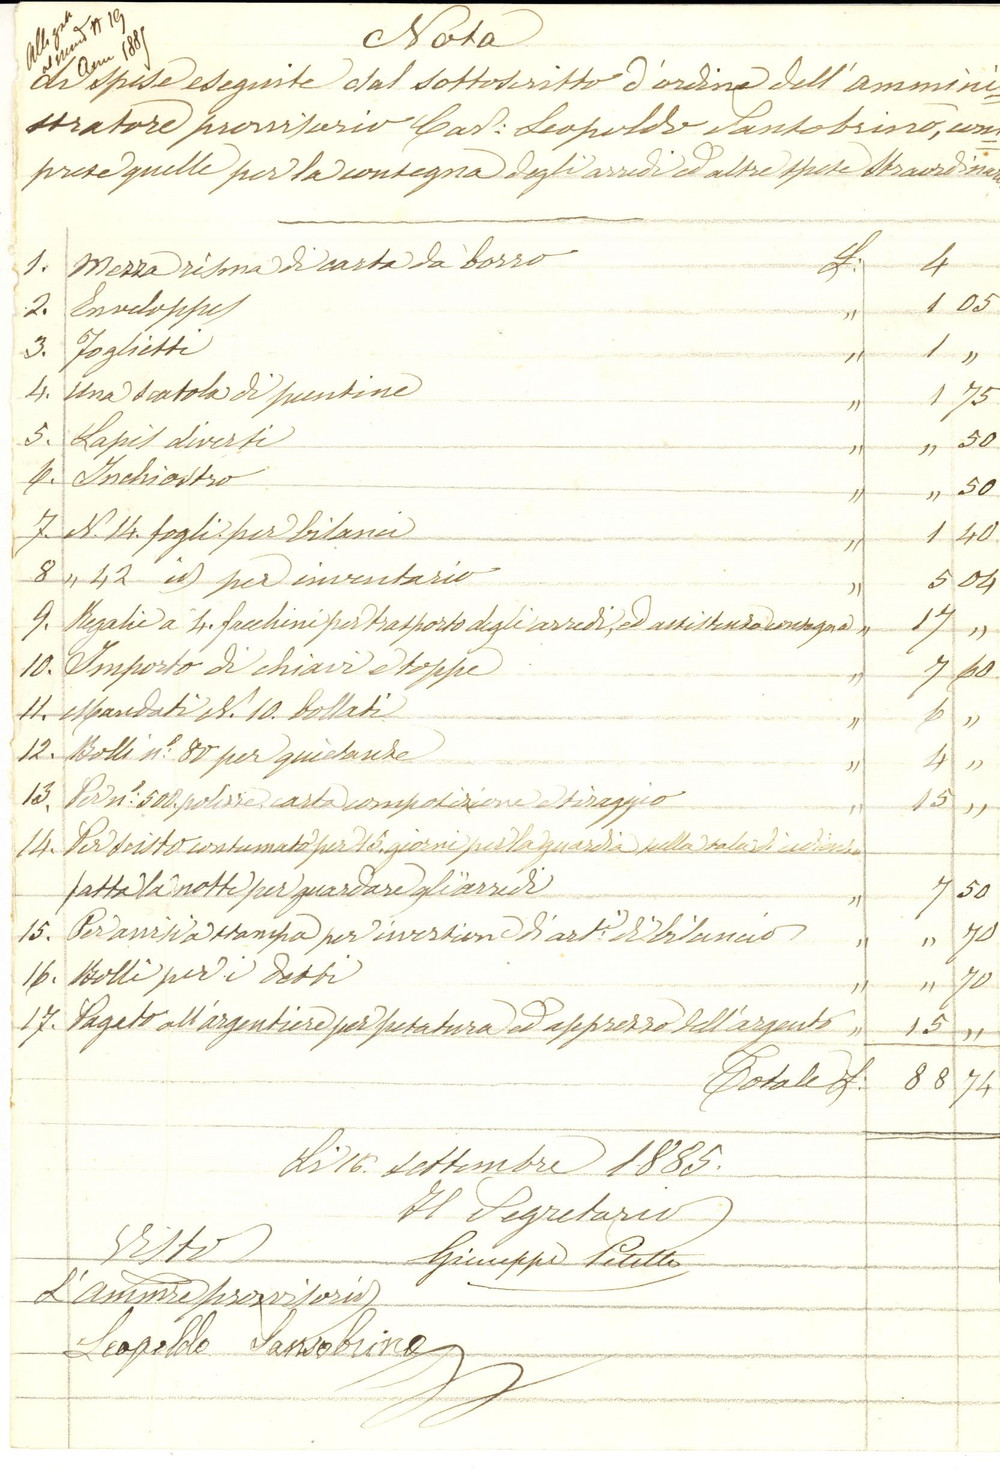 Allegato
al mand. N 19
Anno 1885
Nota
di spese eseguite dal sottoscritto d'ordine dell'Ammini=
stratore provvisorio Cav: Leopoldo Sansobrino, com=
prese quelle per la consegna degli arredi ed altre spese straordinarie
1. Mezza risma di carta da borro £: 4
2. Enveloppes " 1 05
3. Foglietti " 1 "
4. Una scatola di puntine " 1 75
5. Lapis diversi " " 50
6. Inchiostro " " 50
7. N. 14. fogli per bilanci " 1 40
8 " 42 id per inventario " 5 04
9. Regalie a 4. facchini per trasporto degli arredi, ed assistenza consegna " 17 "
10. Importo di chiavi e toppe " 7 60
11. Mandati N. 10. bollati " 6 "
12. Bolli n.° 80 per quietanze " 4 "
13. Per n.° 500. polizze carta composizione e tiraggio " 15 "
14. Per consumato per 15. giorni per la guardia nella sala di udienza
fatta la notte per guardare gli arredi " 7 50
15. Per avvisi a stampa per inversione di art.i di bilancio " " 70
16. Bolli per i detti " " 70
17. Pagato all'argentiere per pesatura ed apprezzo dell'argento " 15 "
Totale £: 88 74
Li 16. settembre 1885.
Il Segretario
Visto
Giuseppe
L'Ammre provvisorio
Leopoldo Sansobrino